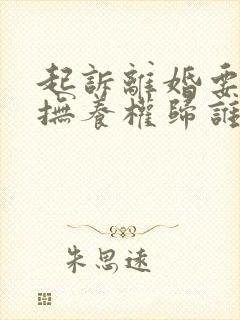 起訴離婚要
撫養權歸誰
朱思遠